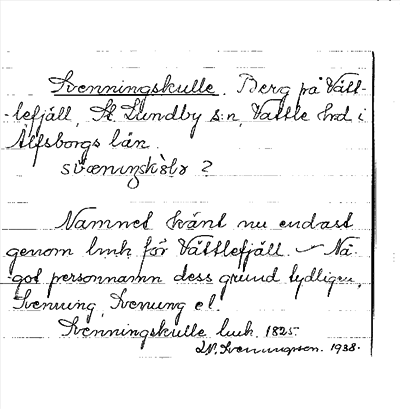 Svenningskulle. Berg på Vätt-
-lefjäll, St. Lundby s:n, Vättle hrd i
Älfsborgs län.
svæniŋskɵlə ?
Namnet känt nu endast
genom lmh för Vättlefjäll. — Nå-
got personnamn dess grund tydligen,
Svenung, Svenung el.
Svenningskulle lmh. 1825.
1938.